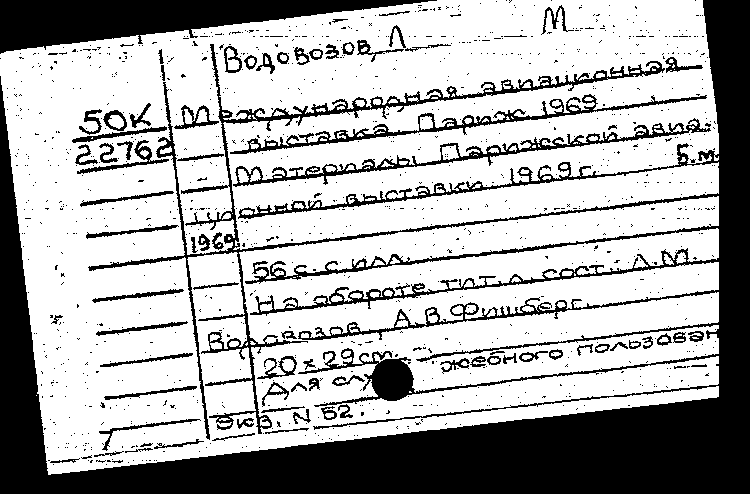 Водовозов, Л М
50К Международная авиационная
22762 выставка. Париж 1969.
Материалы Парижской авиа-
ционной выставки 1969 г. Б.м.
1969.
56 с. с илл.
На обороте тит. л. сост.: Л.М.
Водовозов, А.В. Фишберг.
20 x 29 см.
Для слу жебного пользован
Экз. N 52.